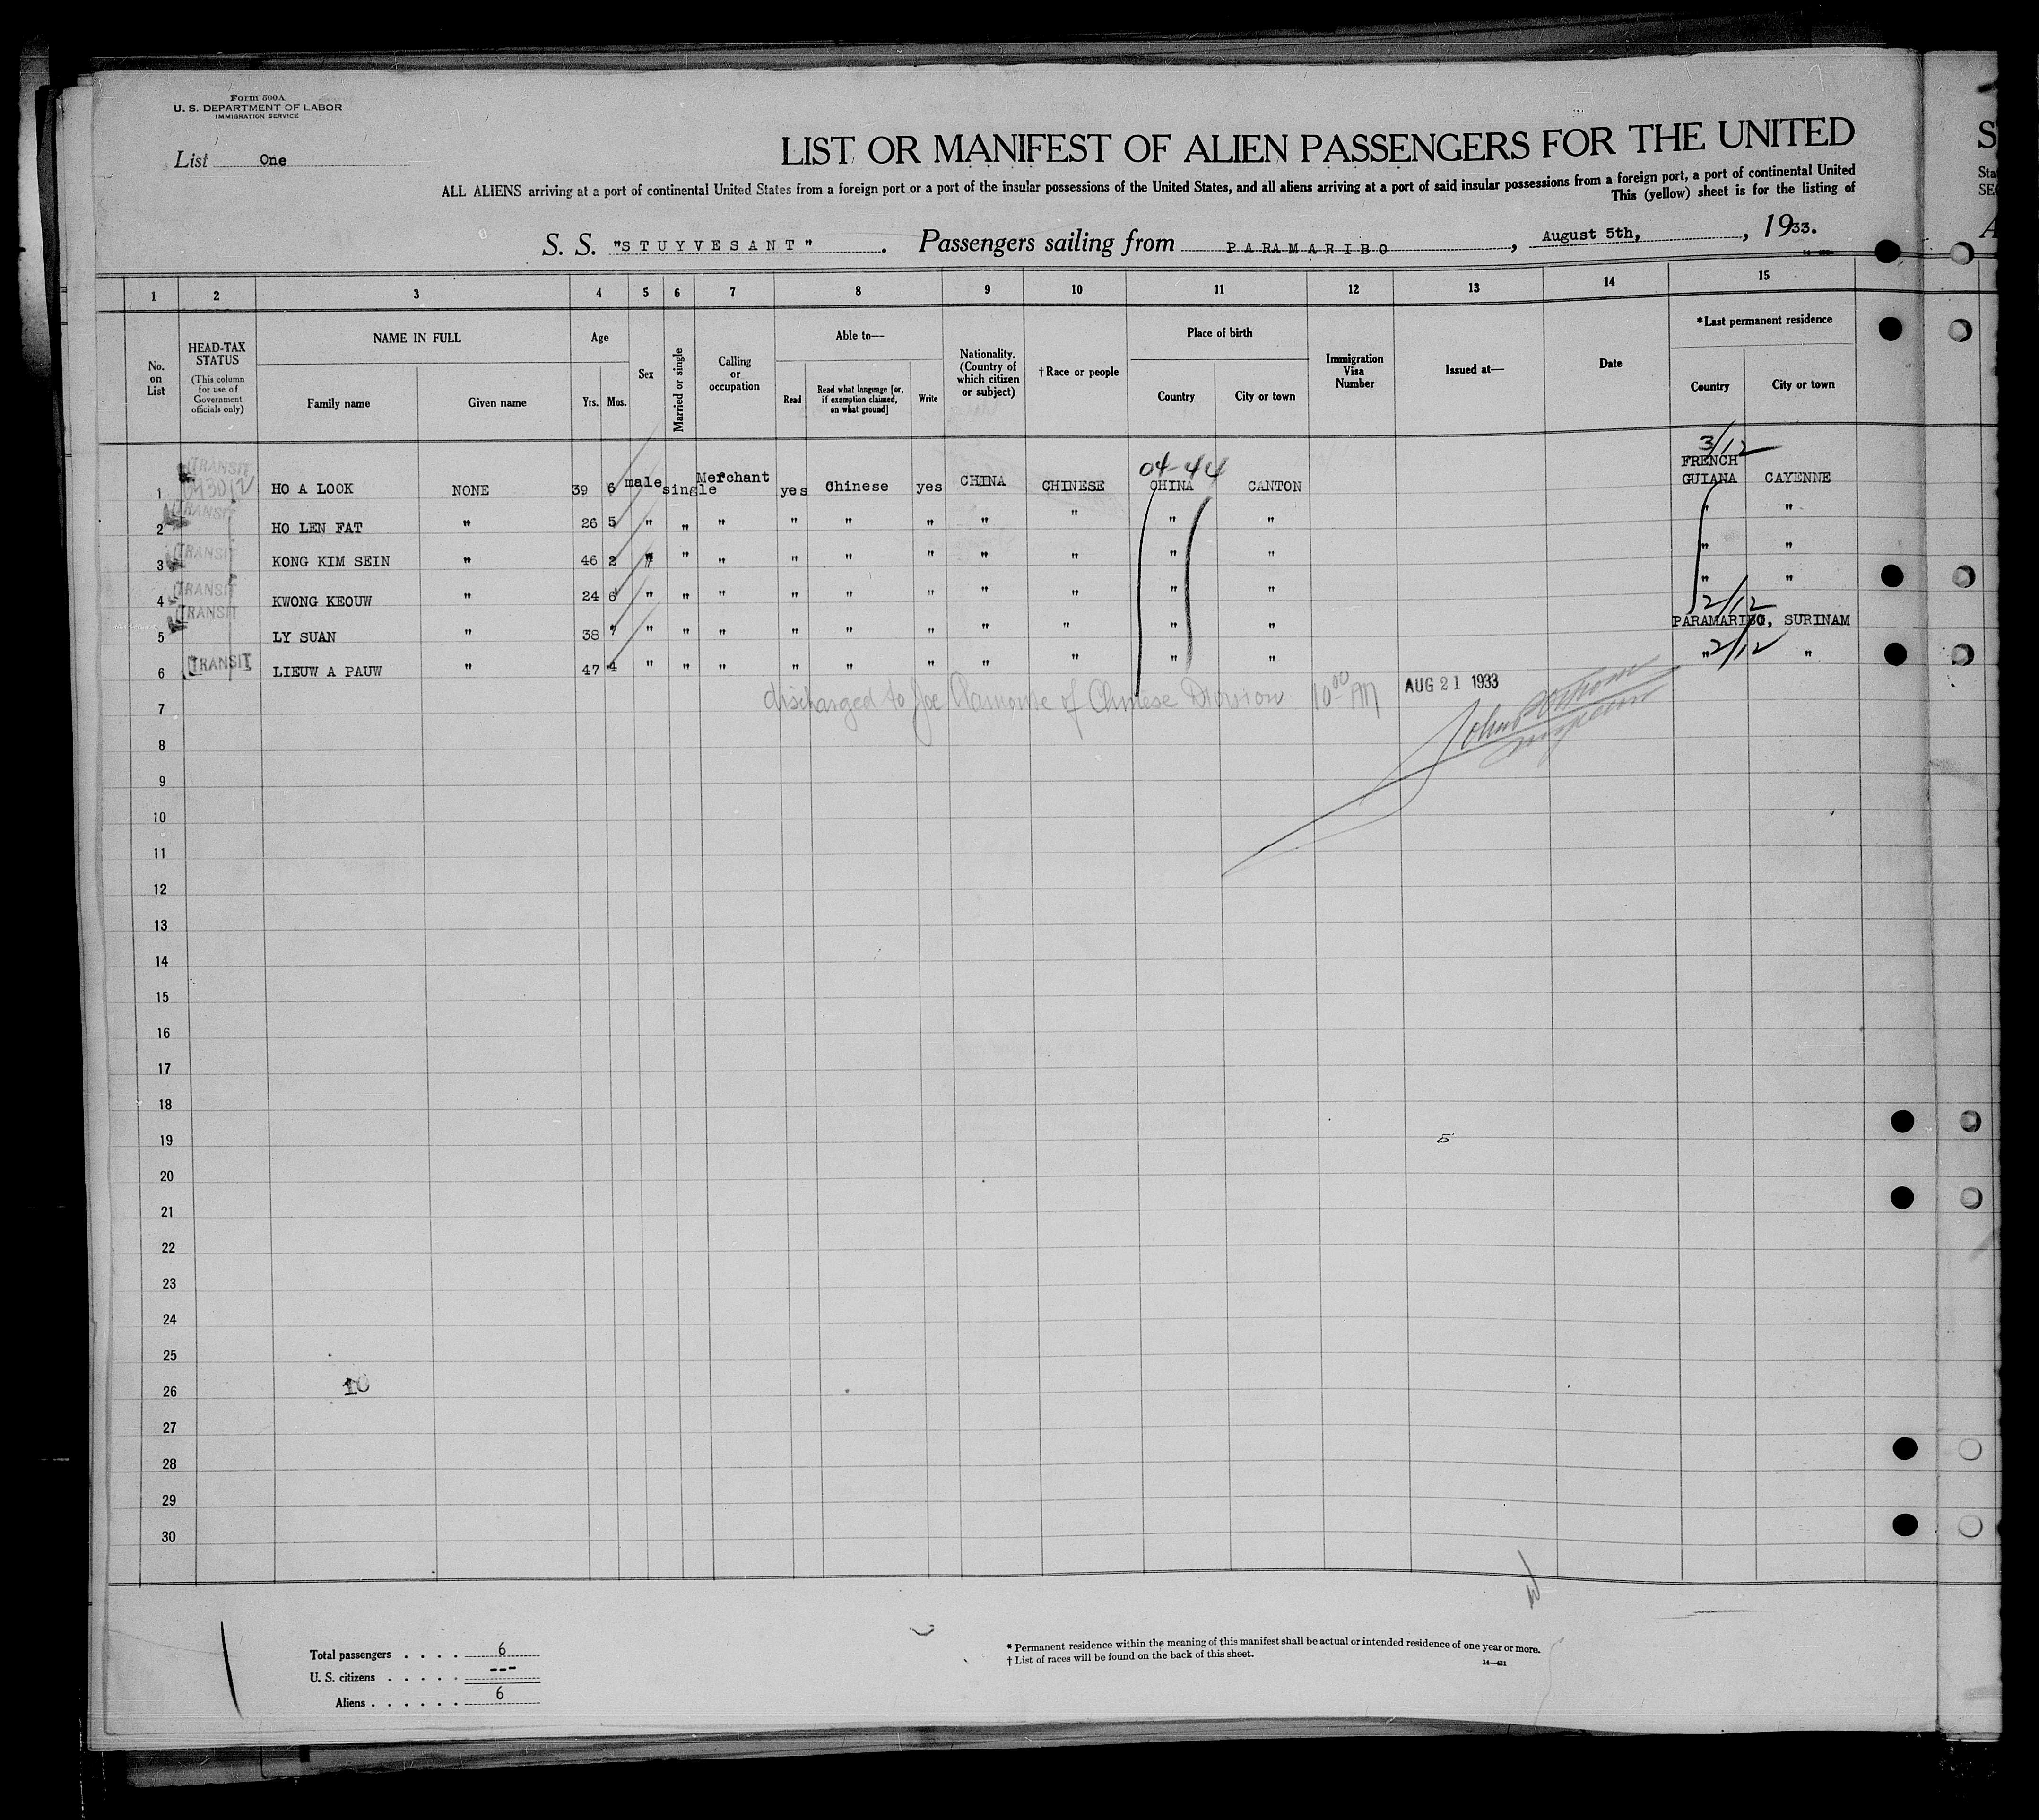 Form 500A
U. S. DEPARTMENT OF LABOR
IMMIGRATION SERVICE
List One
LIST OR MANIFEST OF ALIEN PASSENGERS FOR THE UNITED
ALL ALIENS arriving at a port of continental United States from a foreign port or a port of the insular possessions of the United States, and all aliens arriving at a port of said insular possessions from a foreign port, a port of continental United
This (yellow) sheet is for the listing of
S. S. "STUYVESANT". Passengers sailing from PARAMARIBO, August 5th, , 1933.
1 2 3 4 5 6 7 8 9 10 11 12 13 14 15
No. on List
HEAD-TAX STATUS
(This column for use of Government officials only)
NAME IN FULL
Family name
Given name
Age
Yrs. Mos.
Sex
Married or single
Calling or occupation
Able to—
Read
Read what language [or, if exemption claimed, on what ground]
Write
Nationality. (Country of which citizen or subject)
† Race or people
Place of birth
Country
City or town
Immigration Visa Number
Issued at—
Date
*Last permanent residence
Country
City or town
3/12
04-44
1 TRANSIT HO A LOOK NONE 39 6 male single Merchant yes Chinese yes CHINA CHINESE CHINA CANTON FRENCH GUIANA CAYENNE
2 TRANSIT HO LEN FAT " 26 5 " " " " " " " " " " " "
3 TRANSIT KONG KIM SEIN " 46 2 " " " " " " " " " " " "
4 TRANSIT KWONG KEOUW " 24 6 " " " " " " " " " " " "
2/12
5 TRANSIT LY SUAN " 38 7 " " " " " " " " " " PARAMARIBO, SURINAM
6 TRANSIT LIEUW A PAUW " 47 4 " " " " " " " " " " " 2/12 "
7 discharged to Joe of Chinese Division 10 00 AM AUG 21 1933
John
Inspector
8
9
10
11
12
13
14
15
16
17
18
19 5
20
21
22
23
24
25
26 10
27
28
29
30
Total passengers . . . . 6
U. S. citizens . . . . . ---
Aliens . . . . . . 6
* Permanent residence within the meaning of this manifest shall be actual or intended residence of one year or more.
† List of races will be found on the back of this sheet.
14—421